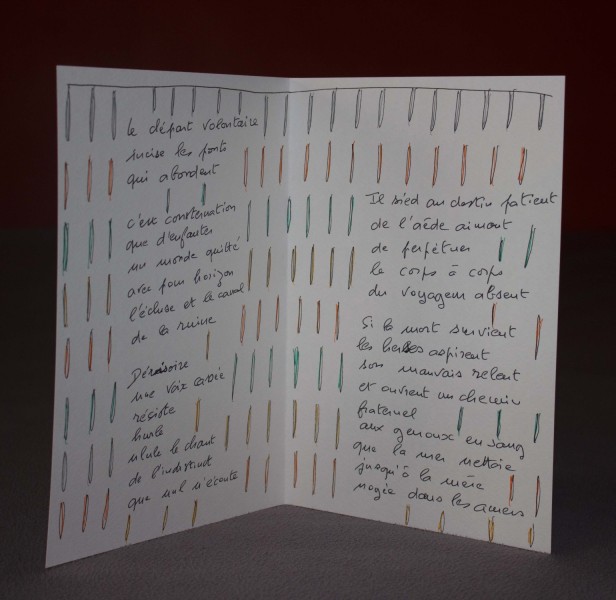 Le départ volontaire
incise les ponts
qui abordent
c'est consternation
que d'enfanter
un monde quitté
avec pour horizon
l'écluse et le canal
de la ruine
Dérisoire
une voix cassée
résiste
hurle
ulule le chant
de l'indistinct
que nul n'écoute
Il sied au destin patient
de l'aède aimant
de perpétuer
le corps à corps
du voyageur absent
Si la mort survient
les herbes aspirent
son mauvais relent
et ouvrent un chemin
fraternel
aux genoux en sang
que la mer nettoie
jusqu'à la mère
noyée dans les amers